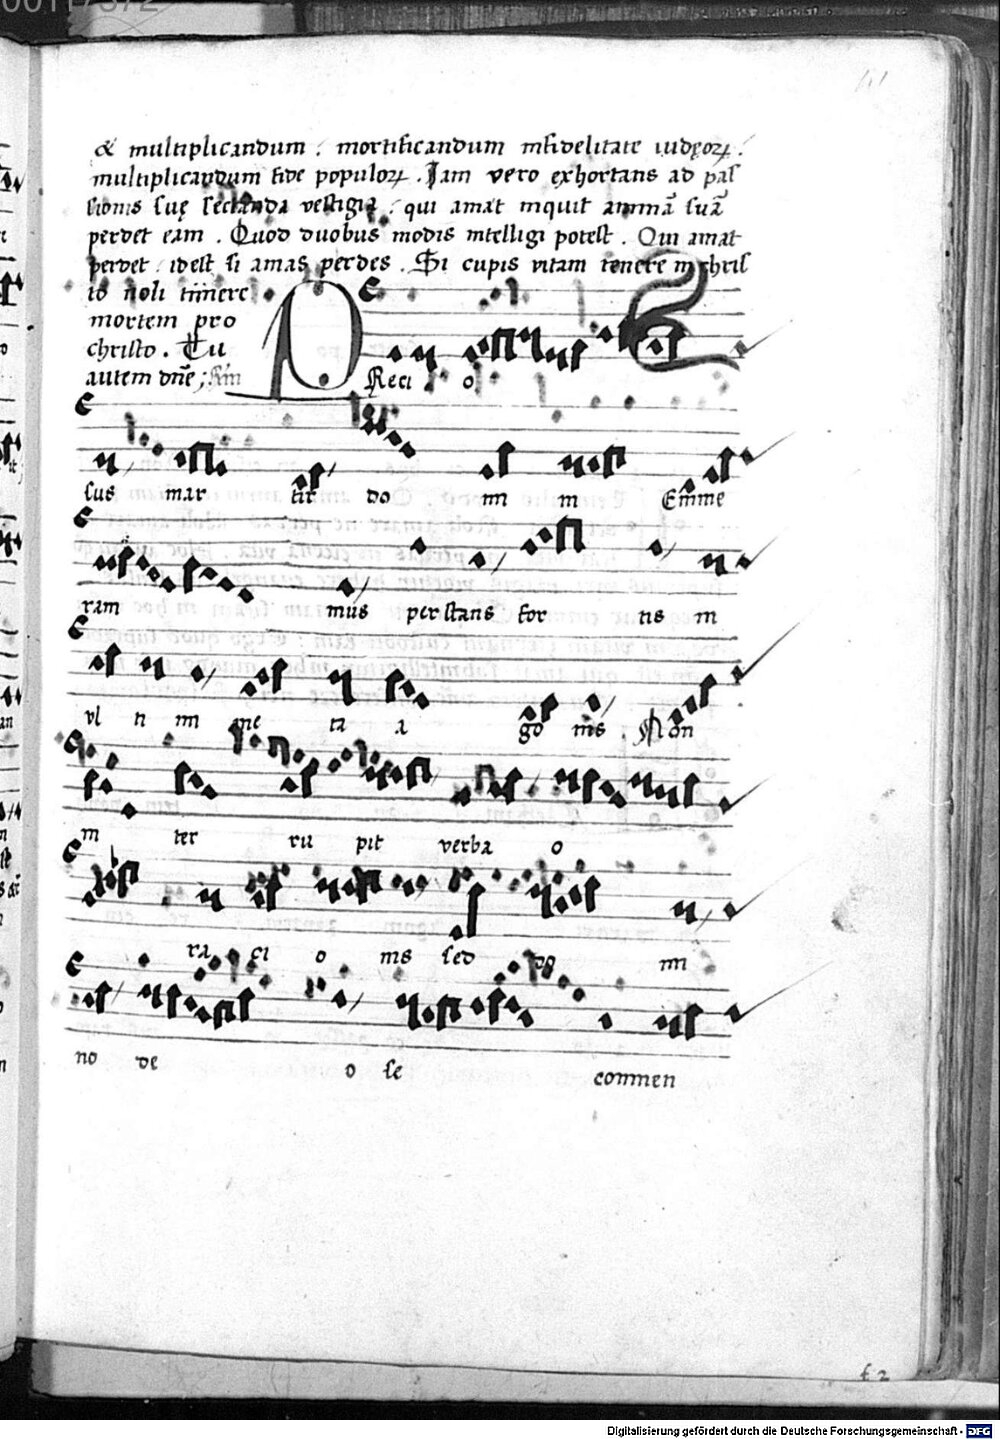 & multiplicandum : mortificandum infidelitate iudęoꝝ .
multiplicandum fide populoꝝ . Iam vero exhortans ad pas
sionis suę sectanda vestigia : qui amat inquit animā suā
perdet eam . Quod duobus modis intelligi potest . Qui amat
perdet : idest si amas perdes . Si cupis vitam tenere in chris
to noli timere
mortem pro
christo . Tu
autem dn̄e ;
P Reci o
sus mar tir do mi ni Emme
ram mus perstans for tis in
vl ti mi me ta a go nis . Non
in ter ru pit verba o
ra ci o nis sed do mi
no de o se commen
f 2
Digitalisierung gefördert durch die Deutsche Forschungsgemeinschaft - DFG